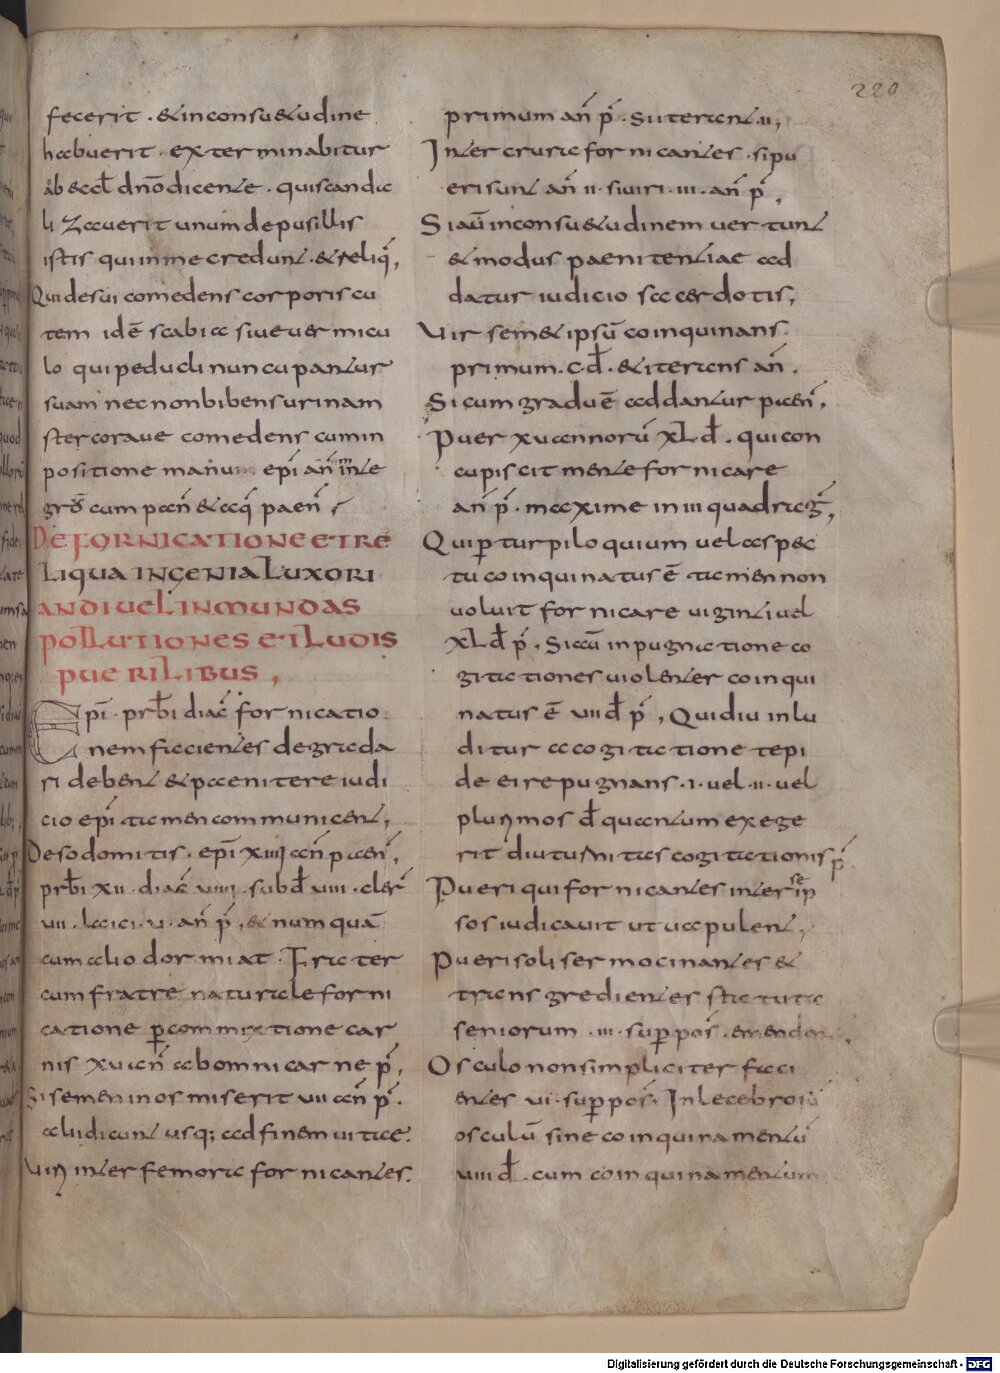 220
fecerit . & inconsu&udine
habuerit . exterminabitur
ab eccl̄ dn̄o dicente . qui scanda
lizauerit unum de pusillis
istis qui in me credunt . & reliq̄,
Qui desui comedens corporis cu
tem idē scabia siue uermicu
lo qui peducli nuncupantur
suam nec non bibens urinam
stercoraue comedens cum in
positione manum epī an̄ inte
grō cum paen̄ & aq̄ paen̄,
DE FORNICATIONE ET RE
LIQUA INGENIA LUXORI
ANDI UEL INMUNDAS
POLLUTIONES ET LUDIS
PUERILIBUS,
Epī . prb̄i diac̄ fornicatio
nem facientes degrada
ri debent & paenitere iudi
cio epī tamen communicent,
De sodomitis . epī xiiii an̄ paen̄,
prb̄i xii . diac̄ viiii . subd̄ viii . cler̄
vii . laici . v . an̄ p̄, & numquā
cum alio dormiat . Frater
cum fratre naturale forni
catione per commixtione car
nis xv an̄ ab omni carne p̄,
Si semen in os miserit vii an̄ p̄ .
alii dicunt usq; ad finem uitae .
Uiri inter femora fornicantes .
primum an̄ p̄ . Si iterent . ii,
Inter crura fornicantes . si pu
eri sunt an̄ ii . si uiri . iii . an̄ p̄,
Si aū in consu&udinem uertunt
& modus paenitentiae ad
datur iudicio sacerdotis,
Uir sem&ipsū coinquinans
primum . c . d̄ . & iterans an̄ .
Si cum gradu ē addantur paen̄ .
Puer xv annorū xl d̄ . qui con
cupiscit mente fornicare
an̄ p̄ . maxime in iii quadraḡ,
Qui per turpiloquium uel aspec
tu coinquinatus ē tamen non
uoluit fornicare uiginti uel
xl d̄ p̄ . Si aū inpugnatione co
gitationes uiolenter coinqui
natus ē vii d̄ p̄, Qui diu inlu
ditur a cogitatione tepi
de ei repugnans . i . uel . ii . uel
plurimos d̄ quantum exege
rit diuturnitas cogitationis p̄
Pueri qui fornicantes inter se ip
sos iudicauit ut uapulent,
Pueri soli sermocinantes &
transgredientes statuta
seniorum . iii . superpos̄ . emendan̄ .
Osculo non simpliciter faci
entes vi . superpos̄ . Inlecebrosū
osculū sine coinquinamentū
viii d̄ . cum coinquinamentum
Digitalisierung gefördert durch die Deutsche Forschungsgemeinschaft - DFG